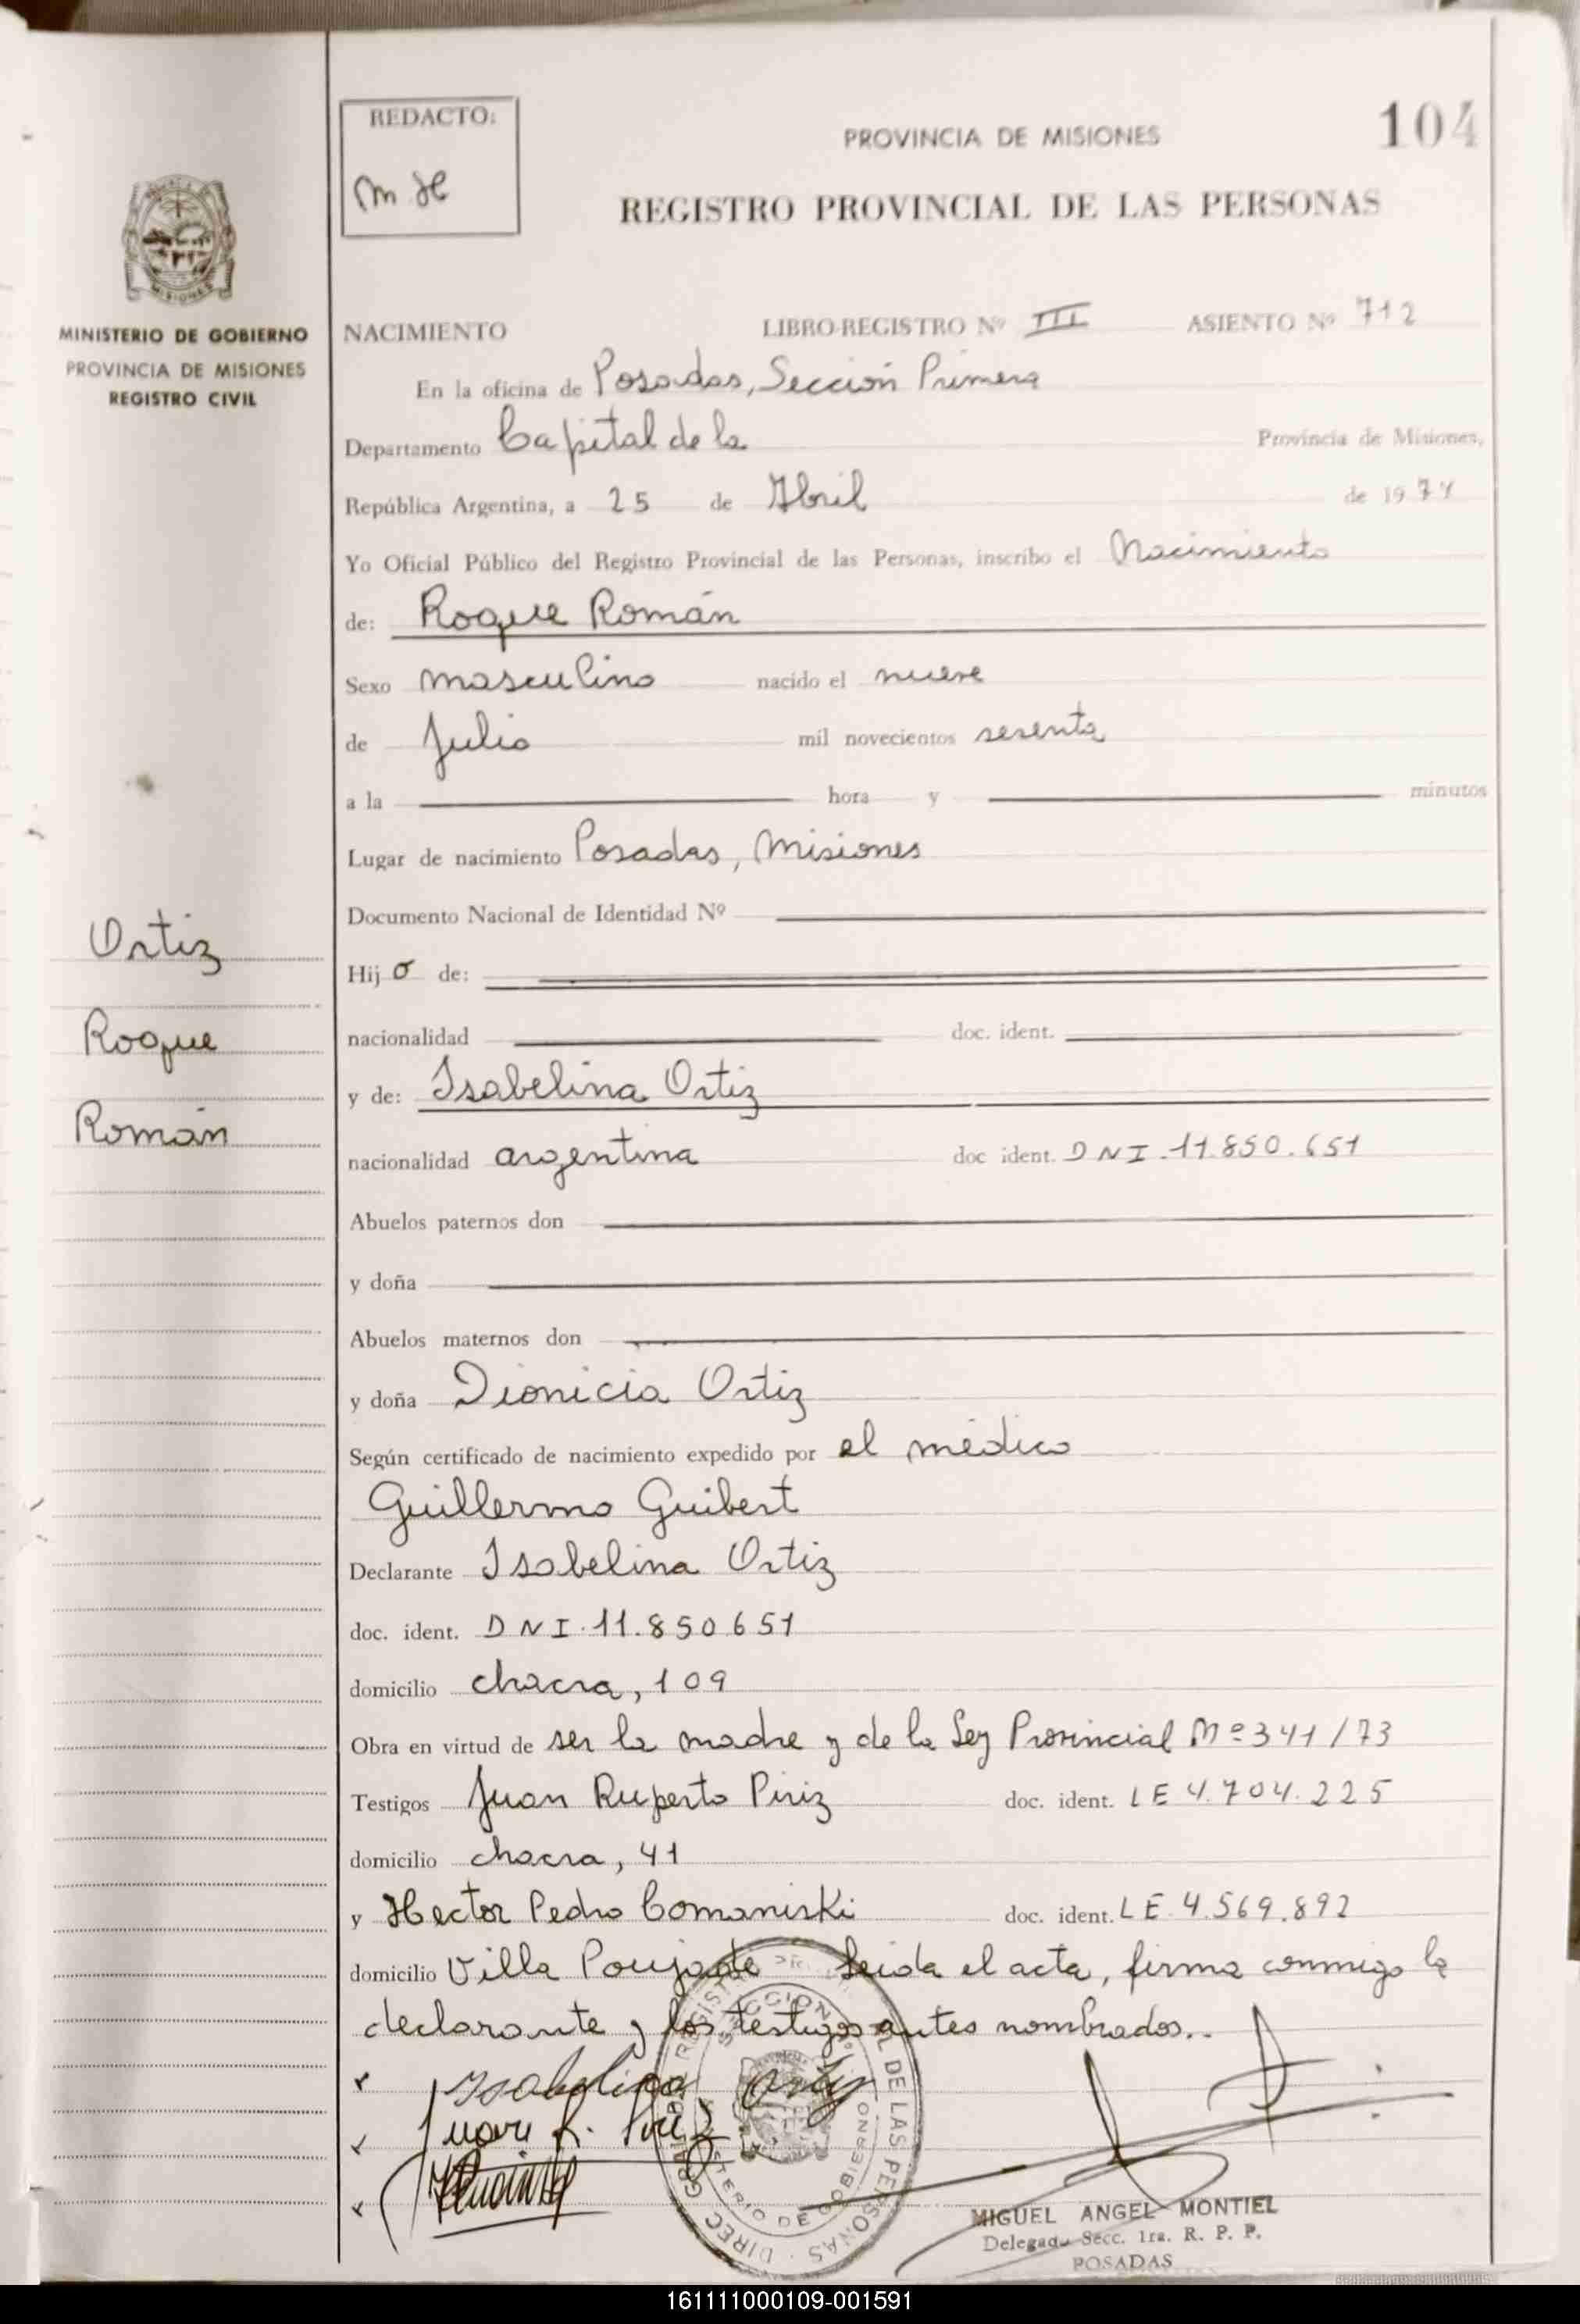 REDACTO:
104
PROVINCIA DE MISIONES
REGISTRO PROVINCIAL DE LAS PERSONAS
MISIONES
MINISTERIO DE GOBIERNO
PROVINCIA DE MISIONES
REGISTRO CIVIL
NACIMIENTO LIBRO-REGISTRO Nº III ASIENTO Nº 712
En la oficina de Posadas, Sección Primera
Departamento Capital de la Provincia de Misiones,
República Argentina, a 25 de Abril de 1974
Yo Oficial Público del Registro Provincial de las Personas, inscribo el Nacimiento
de: Roque Román
Sexo masculino nacido el nueve
de Julio mil novecientos sesenta
a la hora y minutos
Lugar de nacimiento Posadas, Misiones
Documento Nacional de Identidad Nº
Ortiz
Roque
Román
Hijo de:
nacionalidad doc. ident.
y de: Isabelina Ortiz
nacionalidad argentina doc ident. DNI.11.850.651
Abuelos paternos don
y doña
Abuelos maternos don
y doña Dionicia Ortiz
Según certificado de nacimiento expedido por el médico
Guillermo Guibert
Declarante Isabelina Ortiz
doc. ident. DNI.11.850.651
domicilio chacra, 109
Obra en virtud de ser la madre y de la Ley Provincial Nº 341/73
Testigos Juan Ruperto Piriz doc. ident. LE 4.704.225
domicilio chacra, 41
y Hector Pedro Comaniski doc. ident. LE 4.569.892
domicilio Villa Poujade Leida el acta, firma conmigo la
declarante y los testigos antes nombrados..
Isabelina Ortiz
Juan R. Piriz
MIGUEL ANGEL MONTIEL
Delegado Secc. 1ra. R. P. P.
POSADAS
161111000109-001591